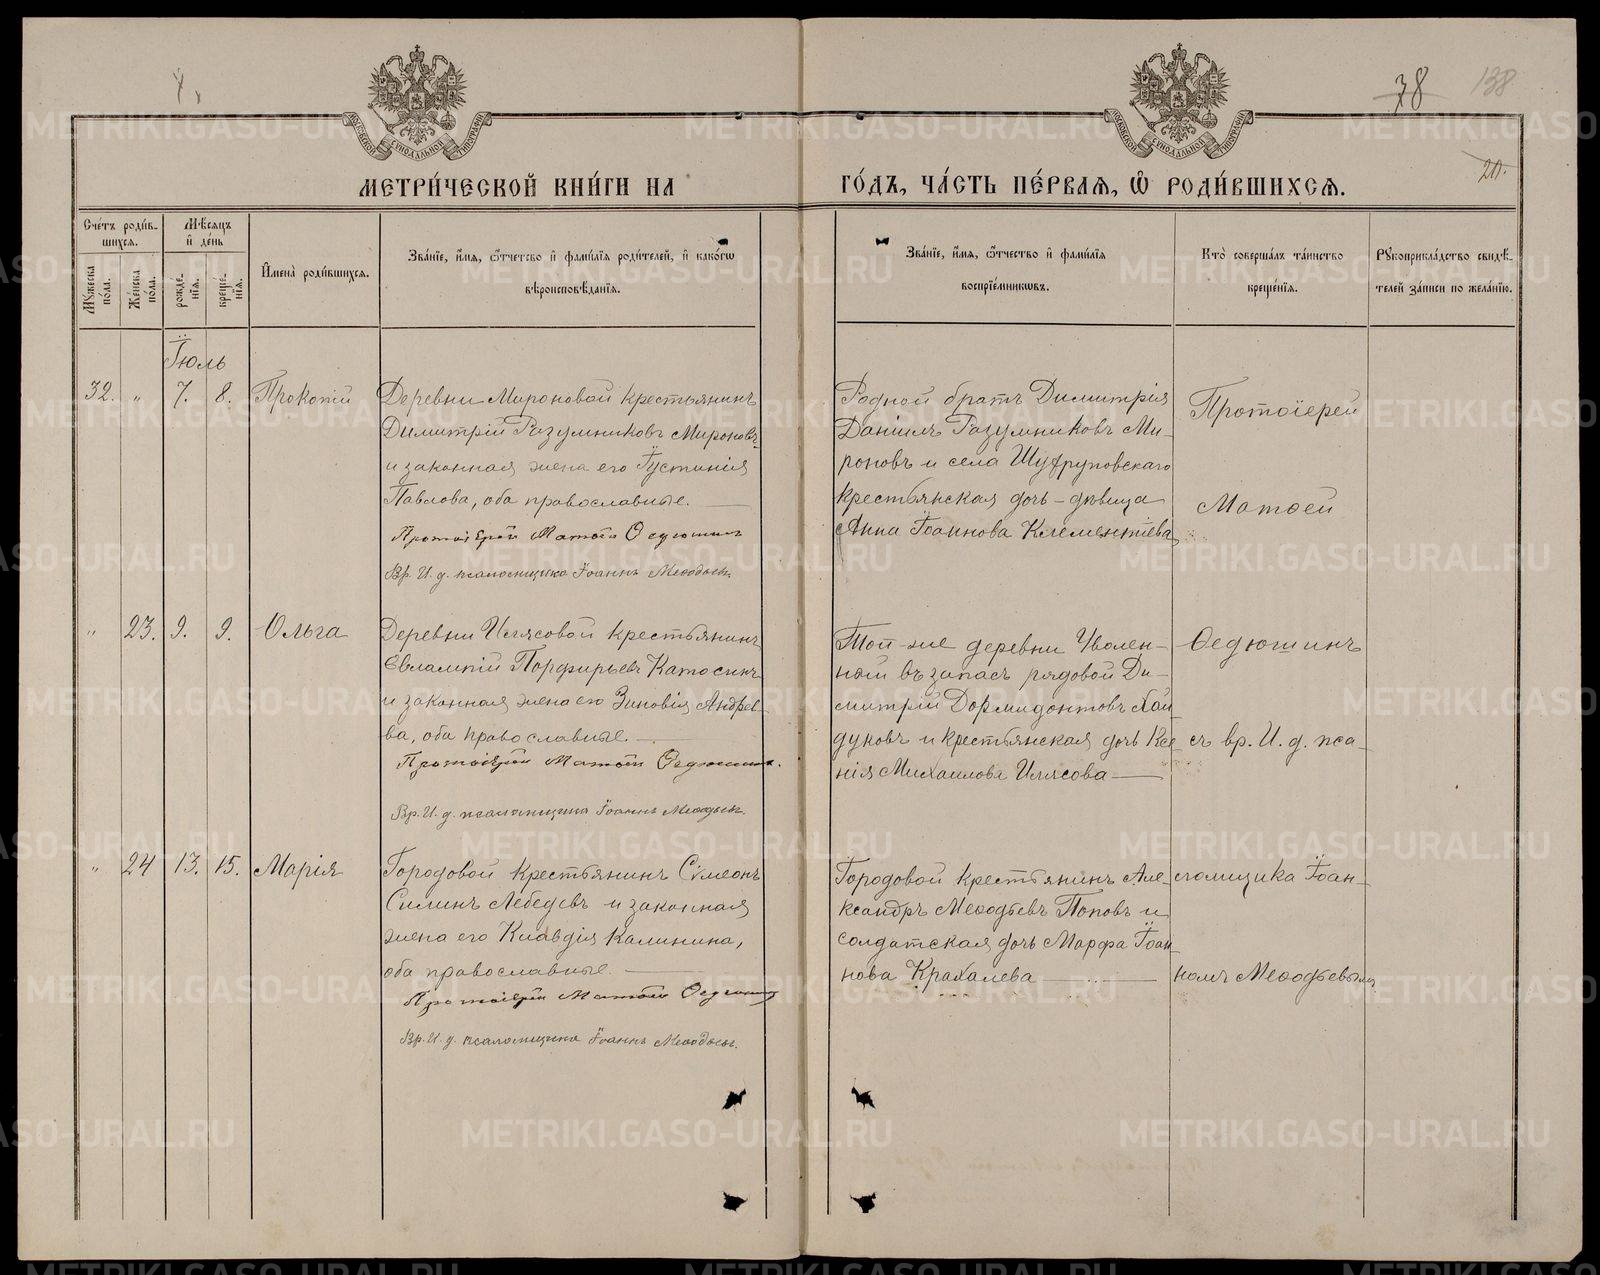 38 138
20.
МОСКОВСКОЙ СѴНОДАЛЬНОЙ ТИПОГРАФІИ
МОСКОВСКОЙ СѴНОДАЛЬНОЙ ТИПОГРАФІИ
МЕТРИ́ЧЕСКОЙ КНИ́ГИ НА
ГО́ДЪ, ЧА́СТЬ ПЕ́РВАЯ, Ѡ РОДИ́ВШИХСЯ.
Сче́тъ роди́в-
шихся.
Мꙋжеска по́ла.
Же́нска по́ла.
Мѣ́сяцъ
и́ де́нь
рожде́-
нїя.
креще́-
нїя.
И҆мена̀ роди́вшихся.
Зва́нїе, и҆́мя, ѻ҆́тчество и҆ фами́лїя роди́телей, и҆ како́гѡ
вѣроисповѣ́данїя.
Зва́нїе, и҆́мя, ѻ҆́тчество и҆ фами́лїя
воспрїе́мникѡвъ.
Кто̀ соверша́лъ та́инство
креще́нїя.
Рꙋкоприкла́дство свидѣ́-
телей за́писи по жела́нїю.
Іюль
32. „ 7. 8. Прокопій
Деревни Мироновой крестьянинъ
Димитрій Разумниковъ Мироновъ
и законная жена его Іустинія
Павлова, оба православные.
Протоіерей Матѳей Ѳедюшинъ
Вр. И. д. псаломщика Іоаннъ Меѳодьевъ.
Родной братъ Димитрія
Даніилъ Разумниковъ Ми-
роновъ и села Шуфруповскаго
крестьянская дочь-дѣвица
Анна Іоаннова Клементіева
Протоіерей
Матѳей
„ 23. 9. 9. Ольга
Деревни Илясовой крестьянинъ
Евлампій Порфирьевъ Катосинъ
и законная жена его Зиновія Андрее-
ва, оба православные.
Протоіерей Матѳей Ѳедюшинъ.
Вр. И. д. псаломщика Іоаннъ Меѳодьевъ.
Той-же деревни Уволен-
ной въ запасъ рядовой Ди-
митрій Дормидонтовъ Хай
дуковъ и крестьянская дочь Ксе
нія Михаилова Илясова
Ѳедюшинъ
съ вр. И. д. пса-
„ 24 13. 15. Марія
Городовой крестьянинъ Сѵмеонъ
Силинъ Лебедевъ и законная
жена его Клавдія Калинина,
оба православные.
Протоіерей Матѳей Ѳедюшинъ
Вр. И. д. псаломщика Іоаннъ Меѳодьевъ.
Городовой крестьянинъ Але-
ксандръ Меѳодьевъ Поповъ и
солдатская дочь Марфа Іоан
нова Крахалева
ломщика Іоан-
номъ Меѳодьевымъ
METRIKI.GASO-URAL.RU